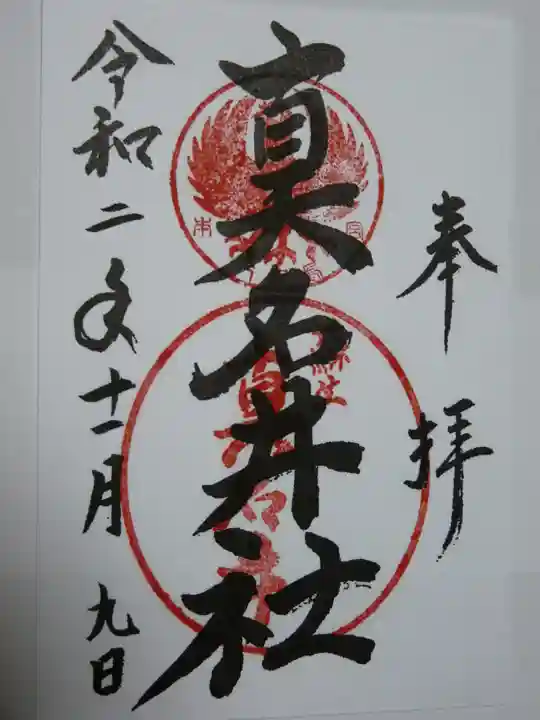 奉拝
真名井社
令和二年十一月九日